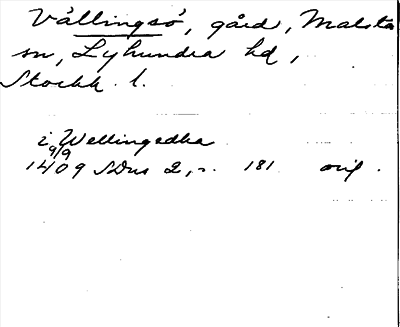 Vällingsö, gård, Malsta
sn, Lyhundra hd,
Stockh. l.
i Wellingsdha
9/9
1409 SDns 2, s. 181 orig.